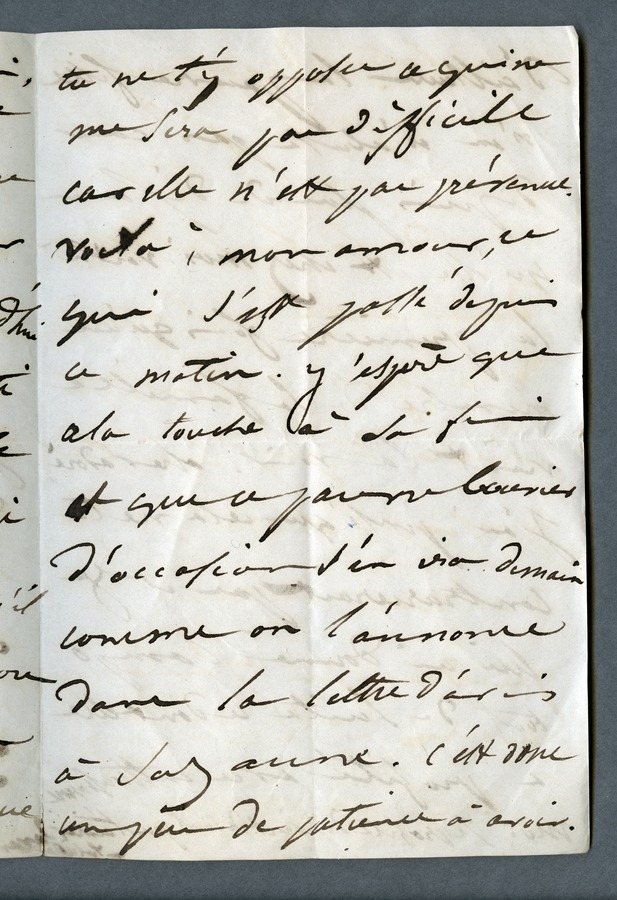 tu ne t'y opposes ce qui ne
me sera pas difficile
car elle n'est pas prévenue.
Voilà, mon amour, ce
qui s'est passé depuis
ce matin. j'espère que
cela touche à sa fin
et que ce pauvre
d'occasion s'en ira demain
comme on l'annonce
dans la lettre d'avis
à Suzanne. C'est donc
un peu de patience à avoir.